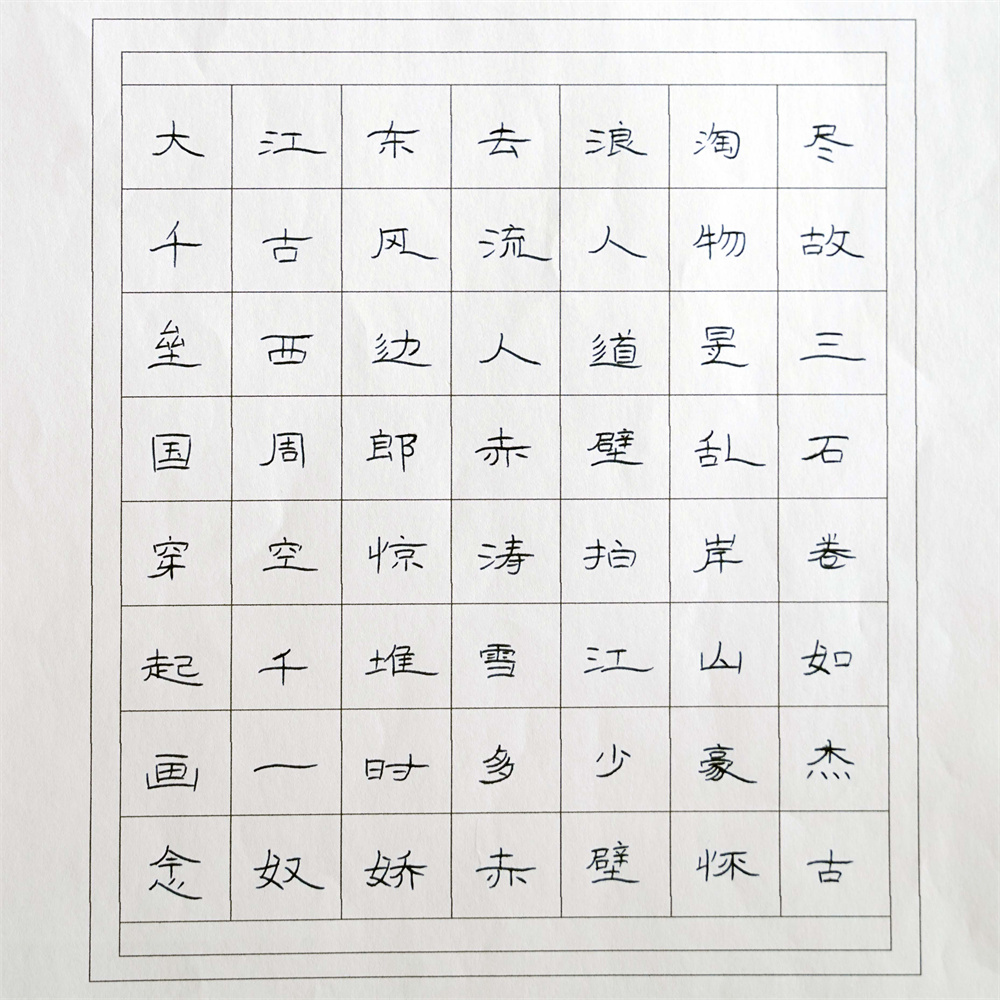 大江东去浪淘尽
千古风流人物故
垒西边人道是三
国周郎赤壁乱石
穿空惊涛拍岸卷
起千堆雪江山如
画一时多少豪杰
念奴娇赤壁怀古